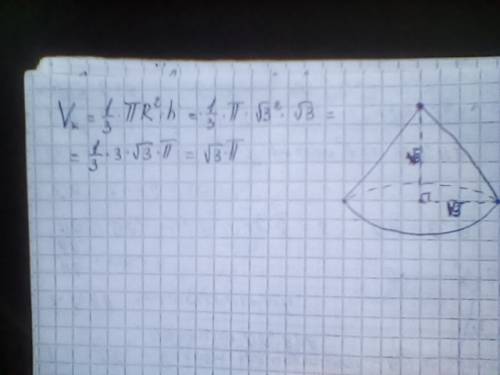 Vк = 1/3 · πR² · h = 1/3 · π · √3² · √3 =
= 1/3 · 3 · √3 · π = √3 π
√3
√3